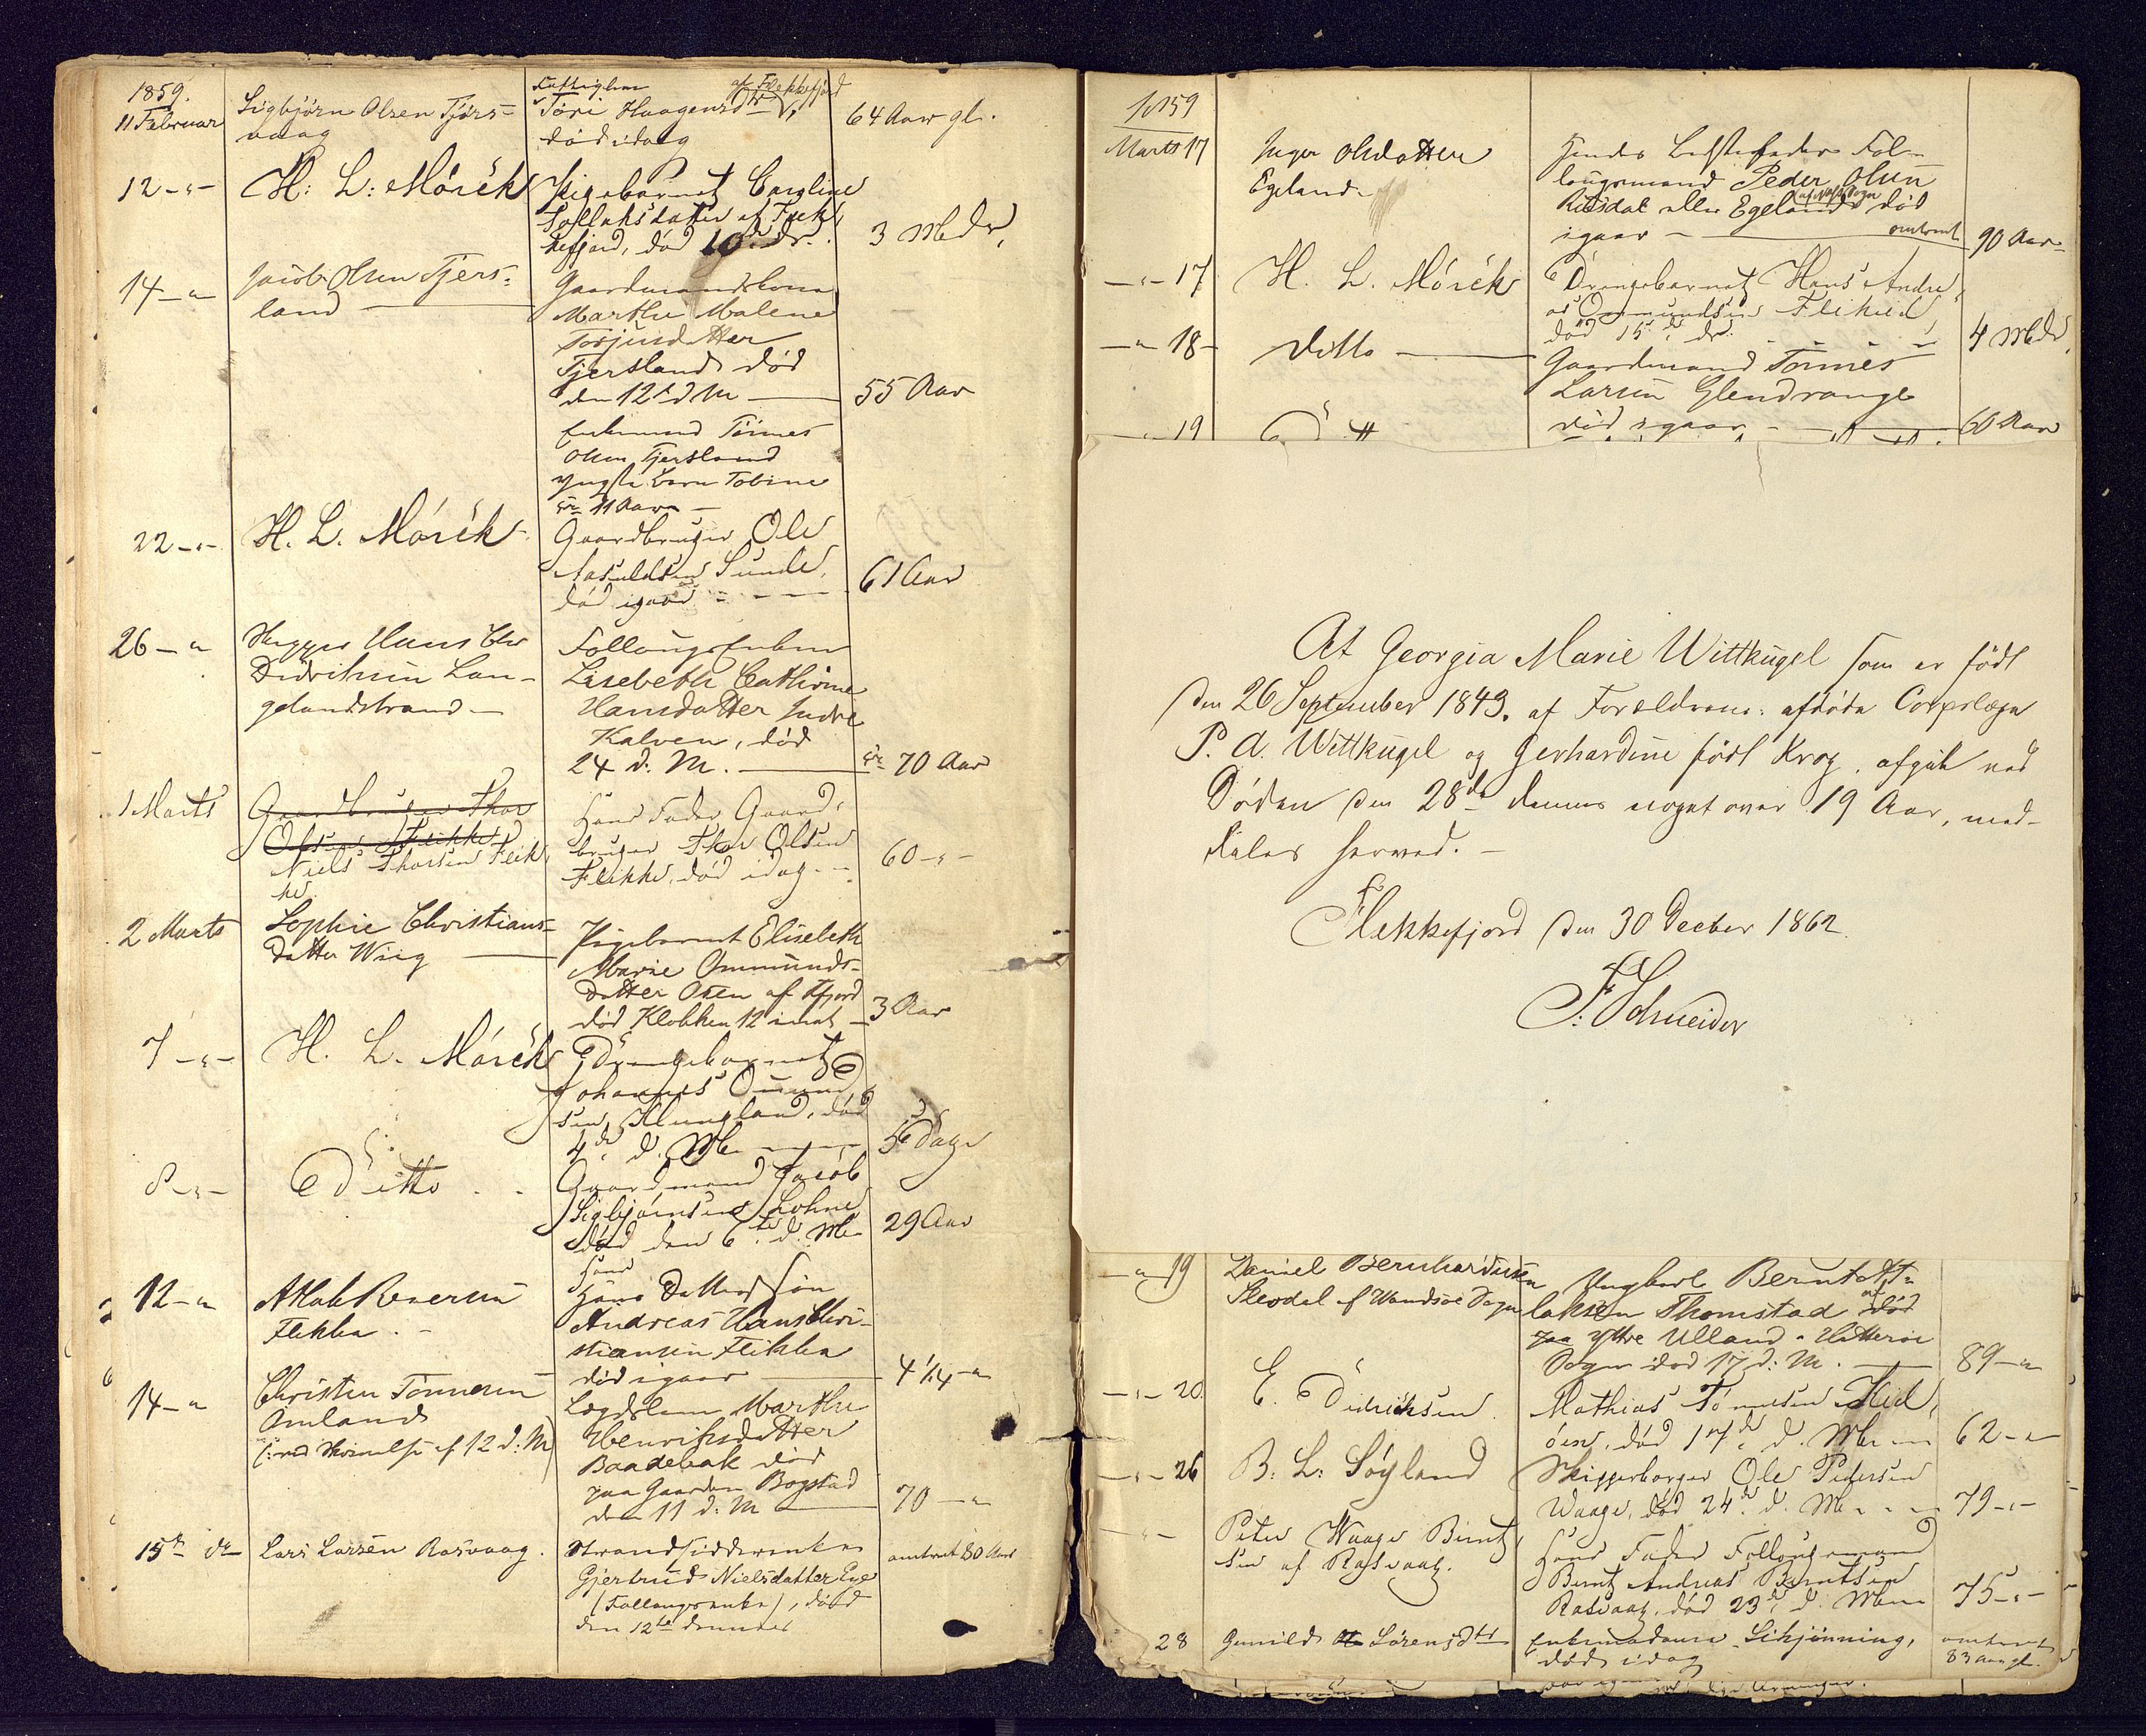 1859.
11 Februar
Sigbjörn Olsen Tjörs-
vaag
af Flekkefjord
Töri Haagensdtr
död idag
64 Aar gl.
12 -"-
H: L: Mörck
Pigebarnet Caroline
Tollaksdatter af Flek-
kefjord, död 10de ds.
3 Mdr,
14 -"
Jacob Olsen Tjers-
land
Gaardmandskone
Marthe Malene
Torjusdatter
Tjersland död
den 12te d M
55 Aar
Enkemand Tönnes
Olsen Tjersland
yngste Barn Tobine
er 11 Aar
22 -"-
H. L. Mörck
Gaardbruger Ole
Aasuldsen Sunde,
död igaar
61 Aar
26 -"
Skipper Hans Chr
Didriksen Lan-
gelandstrand -
Follougsenken
Lisebeth Cathrine
Hansdatter Indre
Kalven, död
24 d. M.
70 Aar
1 Marts
Gaardbruger Thor
Olsen Flikke
Niels Thorsen Flik
ke
Hans Fader Gaard-
bruger Thor Olsen
Flikke, död idag. -
60 -"-
2 Marts
Sophie Christians-
datter Wiig
Pigebarnet Elisebeth
Marie Ommunds-
datter Osen af Ffjord
död Klokken 12 inat
3 Aar
7 -"-
H. L. Mörck
Drengebarnet
Johannes Omund
sen Klungland, död
4de d. M.
5 Dage
8 -"-
Ditto
Gaardmand Jacob
Sigbjörnsen Lohne
död den 6te d. M.
29 Aar
12 -"
Atlak Reiersen
Flikke. -
Hans
Datters Sön
Andreas Hans Chri-
stiansen Flikke
död igaar
4 1/4 -"
14 -"
Christen Tönnesen
Omland
af 12 d: M)
Lægdslem Marthe
Henriksdatter
Baadebak död
paa Gaarden Bogstad
den 11 d: M
70 -"
15de ds
Lars Larsen Rasvaag.
Strandsidderenke
Gjertrud Nielsdatter Eye
(Follougsenke), död
den 12te dennes
omtrent 80 Aar
1859
Marts 17
Inger Olsdatter
Egeland
Hendes Bedstefader Fol-
lougsmand Peder Olsen
eller Egeland död
igaar -
omtrent
90 Aar
-"- 17
H. L. Mörck
Drengebarnet Hans Andre-
as Ommundsen Flikke,
död 15de ds.
4 Mdr.
-" 18 -
Ditto
Gaardmand Tönnes
Larsen Glendrange
död igaar -
60 Aar
-" 19
At Georgia Marie Wittkugel som er født
den 26 September 1843. af Forældrene: afdøde Corpslæge
P. A. Wittkugel og Gerhardine født Krog, afgik ved
Døden den 28de dennes noget over 19 Aar, med-
deles herved. -
Flekkefjord den 30 Decber 1862.
F. Schneider
-" 19
Daniel Bernhardsen
Sleodal af Wandsøe Sogn
Ungkarl Bernt Att-
laksen Thomstad
paa Yttre Ulland - Hitterøe
Sogn död 17 d: M.
89 -"
-"- 20.
E. Didrichsen
Mathias Tönnesen Hid-
öen, död 17de d. M.
62 -"
-"- 26
B: L: Söyland
Skipperborger Ole Pedersen
Waage, död 24de d. M.
79 -"-
-"-
Peter Waage Bernt
sen af Rasvaag.
Hans Fader Follougsmand
Bernt Andreas Berntsen
Rasvaag, död 23de d. M.
75 -"-
28
Gunild Sörensdtr
Enkemadame
död idag
omtrent
83 Aar gl.